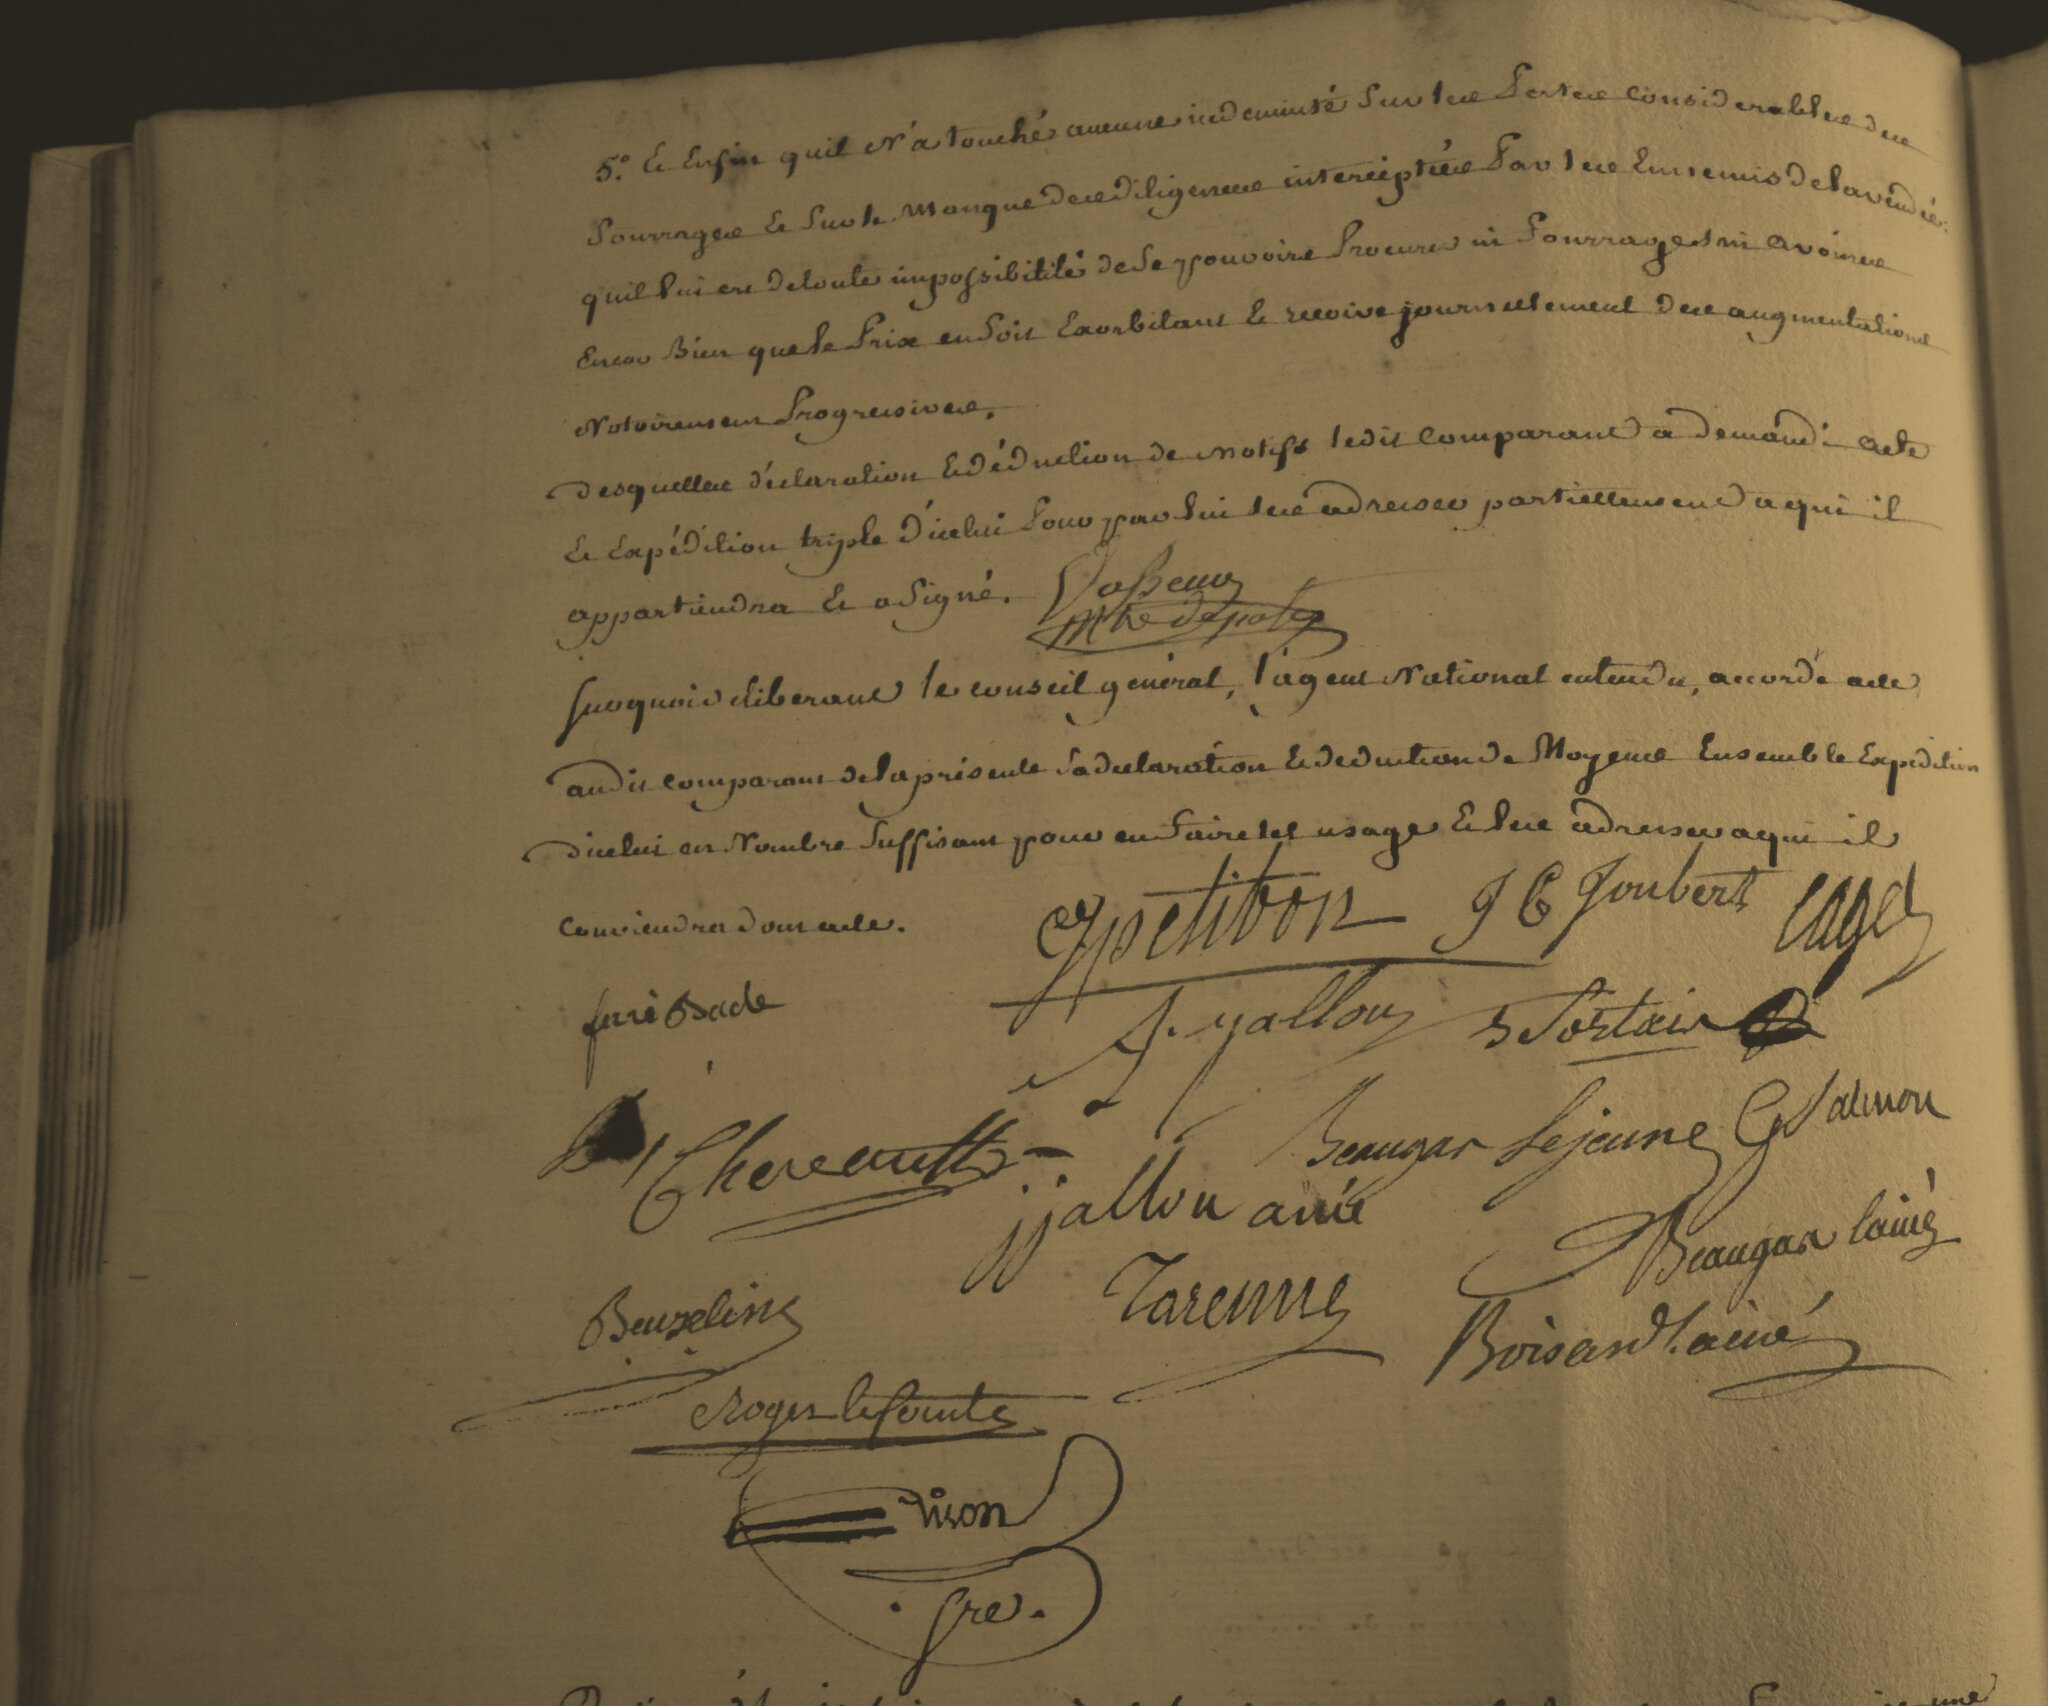 5.° & Enfin quil N'a touché aucune indemnité Sur les Pertes considerables des
fourrages & Sur le Manque des diligences interceptées Par les Ennemis de la vendée.
quil lui est de toute impossibilité de Se pouvoire Procurer ni fourrages ni avoines
Encor Bien que le Prix en Soit Exorbitant & reçoive journellement des augmentations
Notoirement Progressives.
desquelles déclaration & déduction de motifs ledit comparant a demandé acte
& Expédition triple d'icelui Pour par lui les adresser partiellement a qui il
appartiendra & a Signé.
Mtre de poste
Surquoi déliberant le conseil général, l'agent National entendu, accorde acte
audit comparant de la présente Sa declaration & deduction de Moyens Ensemble Expedition
dicelui en Nombre Suffisant pour en faire tel usage & les adresser a qui il
conviendra dont acte.
petibon J C Joubert
J. jallou Portais
Chereault Beaugar Lejeune G Salmon
jjallou ainé Beaugar lainé
Beuzelin Tarenne Boisard l. ainé
Roger le Comte
Vison
gre.